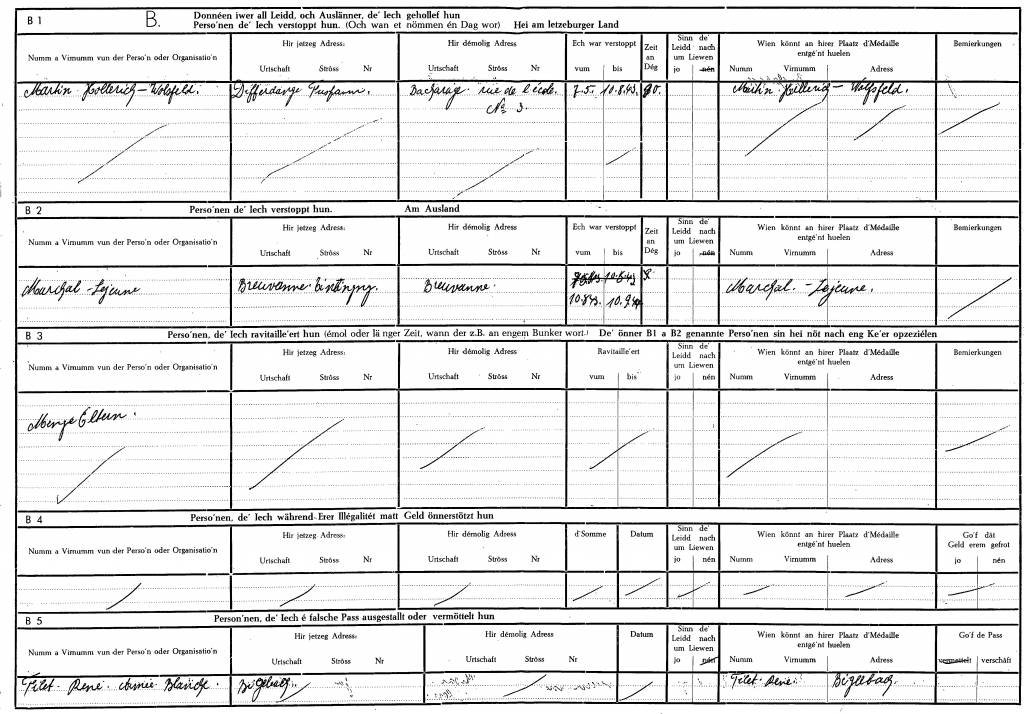 B 1 B. Donnéen iwer all Leidd, och Auslänner, de' Iech gehollef hun
Perso'nen de' Iech verstoppt hun. (Och wan et nömmen én Dag wor) Hei am letzeburger Land
Numm a Virnumm vun der Perso'n oder Organisatio'n
Hir jetzeg Adress:
Urtschaft Ströss Nr
Hir démolig Adress
Urtschaft Ströss Nr
Ech war verstoppt
vum bis
Zeit
an
Dég
Sinn de'
Leidd nach
um Liewen
jo nén
Wien könnt an hirer Plaatz d'Médaille
entgé'nt huelen
Numm Virnumm Adress
Bemierkungen
Martin Hollerich - Wolsfeld. Differdange Bascharage. rue de l'école. 7.5. 10.8.43. 90. Martin Hollerich - Wolsfeld.
No 3.
B 2 Perso'nen de' Iech verstoppt hun. Am Ausland
Numm a Virnumm vun der Perso'n oder Organisatio'n
Hir jetzeg Adress:
Urtschaft Ströss Nr
Hir démolig Adress
Urtschaft Ströss Nr
Ech war verstoppt
vum bis
Zeit
an
Dég
Sinn de'
Leidd nach
um Liewen
jo nén
Wien könnt an hirer Plaatz d'Médaille
entgé'nt huelen
Numm Virnumm Adress
Bemierkungen
Marchal - Lejeune Breuvanne Breuvanne. Marchal. - Lejeune.
10.8.43. 10.9.44
B 3 Perso'nen, de' Iech ravitaille'ert hun (émol oder länger Zeit, wann der z.B. an engem Bunker wort.) De' önner B1 a B2 genannte Perso'nen sin hei nöt nach eng Ke'er opzeziélen
Numm a Virnumm vun der Perso'n oder Organisatio'n
Hir jetzeg Adress:
Urtschaft Ströss Nr
Hir démolig Adress
Urtschaft Ströss Nr
Ravitaille'ert
vum bis
Sinn de'
Leidd nach
um Liewen
jo nén
Wien könnt an hirer Plaatz d'Médaille
entgé'nt huelen
Numm Virnumm Adress
Bemierkungen
Menge Eltern.
B 4 Perso'nen, de' Iech während Erer Illégalitét matt Geld önnerstötzt hun
Numm a Virnumm vun der Perso'n oder Organisatio'n
Hir jetzeg Adress:
Urtschaft Ströss Nr
Hir démolig Adress
Urtschaft Ströss Nr
d'Somme
Datum
Sinn de'
Leidd nach
um Liewen
jo nén
Wien könnt an hirer Plaatz d'Médaille
entgé'nt huelen
Numm Virnumm Adress
Go'f dát
Geld erem gefrot
jo nén
B 5 Person'nen, de' Iech é falsche Pass ausgestallt oder vermöttelt hun
Numm a Virnumm vun der Perso'n oder Organisatio'n
Hir jetzeg Adress:
Urtschaft Ströss Nr
Hir démolig Adress
Urtschaft Ströss Nr
Datum
Sinn de'
Leidd nach
um Liewen
jo nén
Wien könnt an hirer Plaatz d'Médaille
entgé'nt huelen
Numm Virnumm Adress
Go'f de Pass
vermëttelt verschäft
Filet. René. Blanche. Bigelbach. Filet. René. Bigelbach.